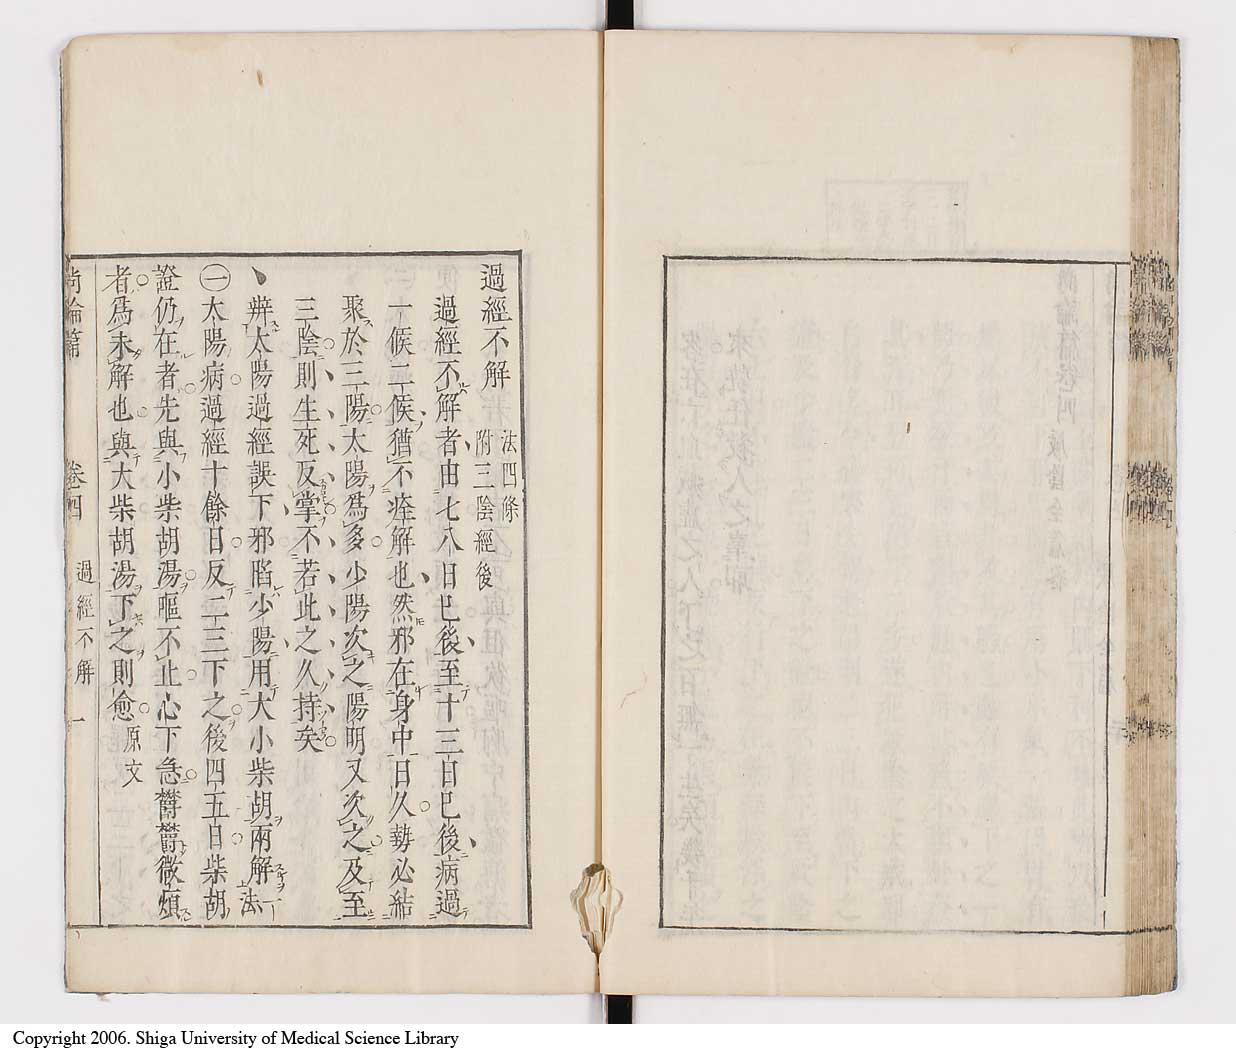 過經不解 法四條 附三陰經後
過經不解者由七八日已後至十三日已後病過
一候二候猶不痊解也然邪在身中日久勢必結
聚於三陽太陽爲多少陽次之陽明又次之及至
三陰則生死反掌不若此之久持矣
辨太陽過經誤下邪陷少陽用大小柴胡兩解法
㊀太陽病過經十餘日反二三下之後四五日柴胡
證仍在者先與小柴胡湯嘔不止心下急欝欝微煩
者爲未解也與大柴胡湯下之則愈 原文
尚論篇 卷四 過經不解 一
Copyright 2006. Shiga University of Medical Science Library